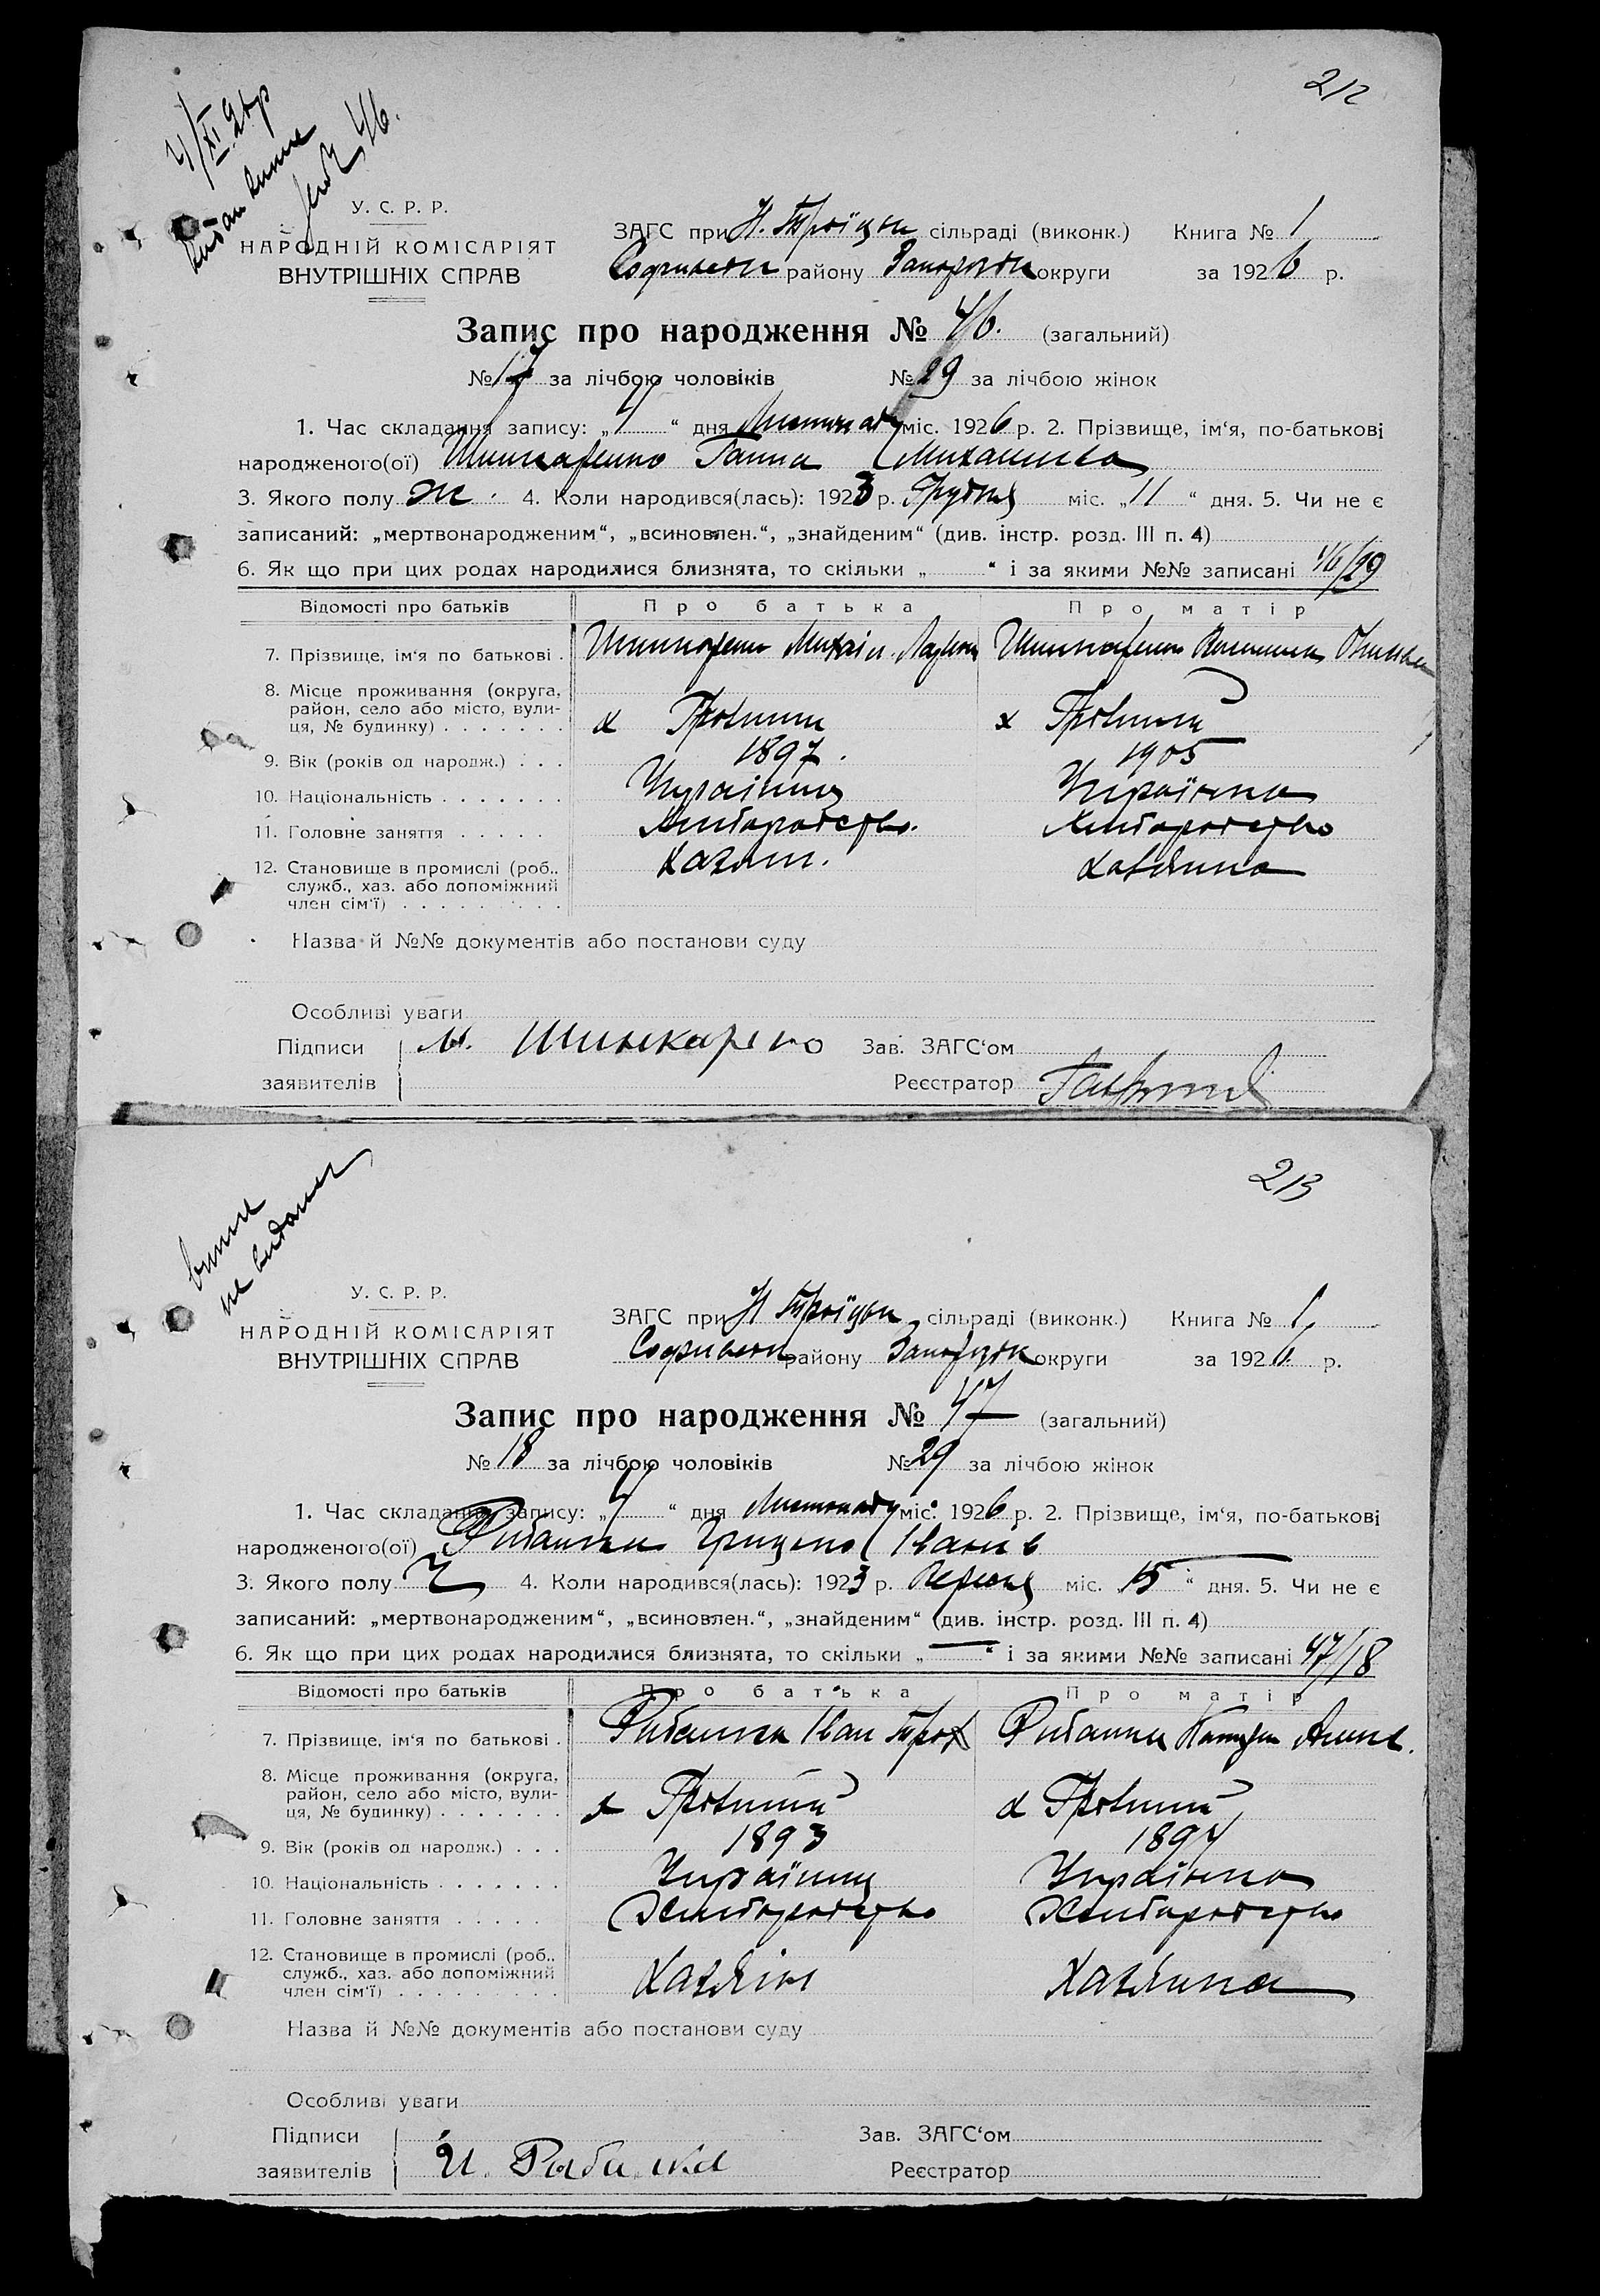 212
У. С. Р. Р.
НАРОДНІЙ КОМІСАРІЯТ
ВНУТРІШНІХ СПРАВ
ЗАГС при Н. Троїцьк сільраді (виконк.) Книга № 1
району округи за 1926 р.
Запис про народження № 46. (загальний)
№ 17 за лічбою чоловіків № 29 за лічбою жінок
1. Час складання запису: „4“ дня Листопаду міс. 1926 р. 2. Прізвище, ім‘я, по-батькові
народженого(ої) Шинкаренко Ганна Михайлівна
3. Якого полу ж. 4. Коли народився(лась): 1923 р. Грудня міс. „11“ дня. 5. Чи не є
записаний: „мертвонародженим“, „всиновлен.“, „знайденим“ (див. інстр. розд. III п. 4)
6. Як що при цих родах народилися близнята, то скільки „ “ і за якими №№ записані 46/29
Відомості про батьків Про батька Про матір
7. Прізвище, ім‘я по батькові . Шинкаренко Михаіл Шинкаренко
8. Місце проживання (округа,
район, село або місто, вули-
ця, № будинку) . . . . . . . х х
9. Вік (років од народж.) . . . 1897. 1905
10. Національність . . . . . . . Українець Українка
11. Головне заняття . . . . . Хліборобство. Хліборобство
12. Становище в промислі (роб.,
служб., хаз. або допоміжний
член сім‘ї) . . . . . . . . . Хазяін. Хазяйка
Назва й №№ документів або постанови суду
Особливі уваги
Підписи М. Шинкаренко Зав. ЗАГС‘ом
заявителів Реєстратор
213
виписи
не видані
У. С. Р. Р.
НАРОДНІЙ КОМІСАРІЯТ
ВНУТРІШНІХ СПРАВ
ЗАГС при Н Троїцьк сільраді (виконк.) Книга № 1
району округи за 1926 р.
Запис про народження № 47 (загальний)
№ 18 за лічбою чоловіків № 29 за лічбою жінок
1. Час складання запису: „4“ дня Листопаду міс. 1926 р. 2. Прізвище, ім‘я, по-батькові
народженого(ої) Рибалка Грицько Іванів
3. Якого полу Ч 4. Коли народився(лась): 1923 р. Вересня міс. „15“ дня. 5. Чи не є
записаний: „мертвонародженим“, „всиновлен.“, „знайденим“ (див. інстр. розд. III п. 4)
6. Як що при цих родах народилися близнята, то скільки „—“ і за якими №№ записані 47/18
Відомості про батьків Про батька Про матір
7. Прізвище, ім‘я по батькові . Рибалка Іван Троф Рибалка
8. Місце проживання (округа,
район, село або місто, вули-
ця, № будинку) . . . . . . . х х
9. Вік (років од народж.) . . . 1893 1894
10. Національність . . . . . . . Українець Українка
11. Головне заняття . . . . . Хліборобство Хліборобство
12. Становище в промислі (роб.,
служб., хаз. або допоміжний
член сім‘ї) . . . . . . . . . Хазяін Хазяйка
Назва й №№ документів або постанови суду
Особливі уваги
Підписи Зав. ЗАГС‘ом
заявителів И. Рыбалка Реєстратор